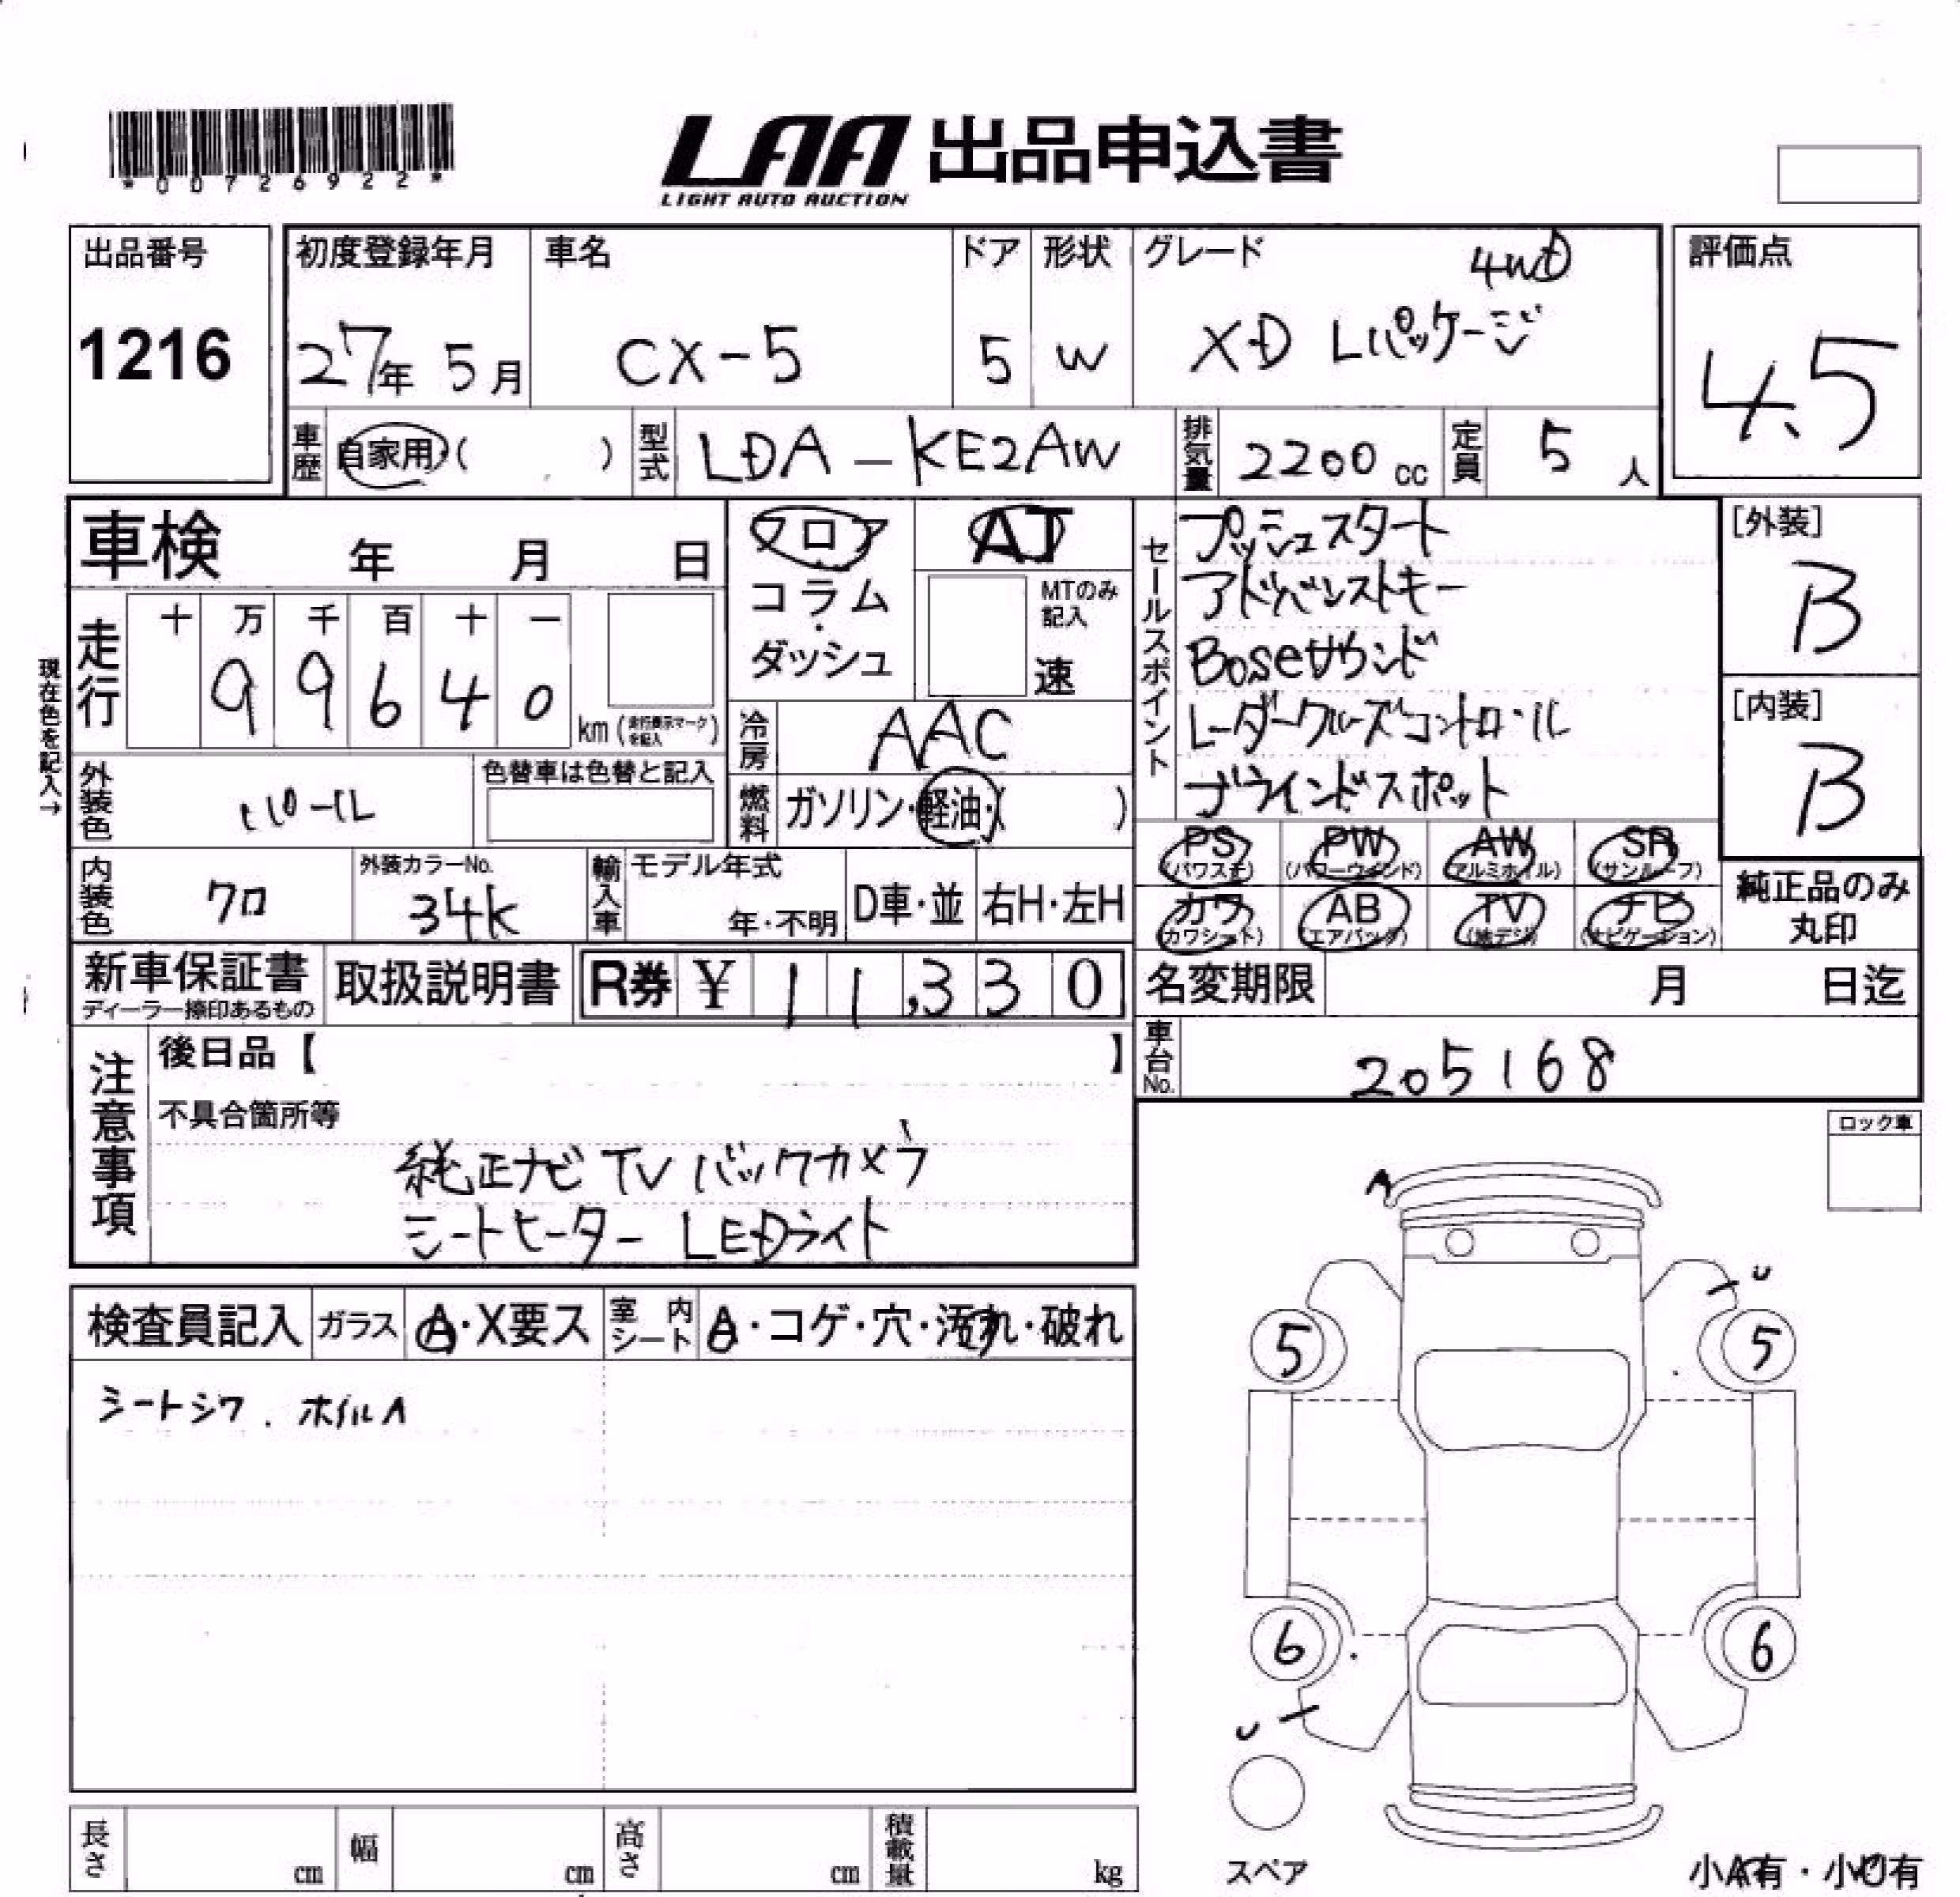 *00726922*
LAA 出品申込書
LIGHT AUTO AUCTION
出品番号
1216
初度登録年月
27年 5月
車名
CX-5
ドア
5
形状
W
グレード
4WD
XD Lパッケージ
評価点
4.5
車歴
自家用・( )
型式
LDA-KE2AW
排気量
2200 cc
定員
5 人
車検 年 月 日
現在色を記入→
走行
十 万 千 百 十 一
9 9 6 4 0
km (走行表示マークを記入)
フロア
コラム
・
ダッシュ
AT
MTのみ
記入
速
冷房
AAC
燃料
ガソリン・軽油・( )
外装色
パール
色替車は色替と記入
内装色
クロ
外装カラーNo.
34K
輸入車
モデル年式
年・不明
D車・並
右H・左H
セールスポイント
プッシュスタート
アドバンストキー
Boseサウンド
レーダークルーズコントロール
ブラインドスポット
[外装]
B
[内装]
B
PS
(パワステ)
PW
(パワーウインド)
AW
(アルミホイル)
SR
(サンルーフ)
カワ
(カワシート)
AB
(エアバック)
TV
(地デジ)
ナビ
(ナビゲーション)
純正品のみ
丸印
新車保証書
ディーラー捺印あるもの
取扱説明書
R券 ¥ 11,330
名変期限 月 日迄
車台No.
205168
注意事項
後日品【 】
不具合箇所等
純正ナビ TV バックカメラ
シートヒーター LEDライト
ロック車
検査員記入
ガラス
A・X要ス
室内シート
A・コゲ・穴・汚れ・破れ
シートシワ. ホイルA
A
U
5
5
6
6
U
スペア
小A有・小U有
長さ cm
幅 cm
高さ cm
積載量 kg